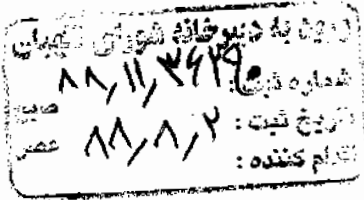 ورود به دبیرخانه شورای نگهبان
شماره ثبت:
صبح
تاریخ ثبت: ۸۸/۸/۲
عصر
اقدام کننده: